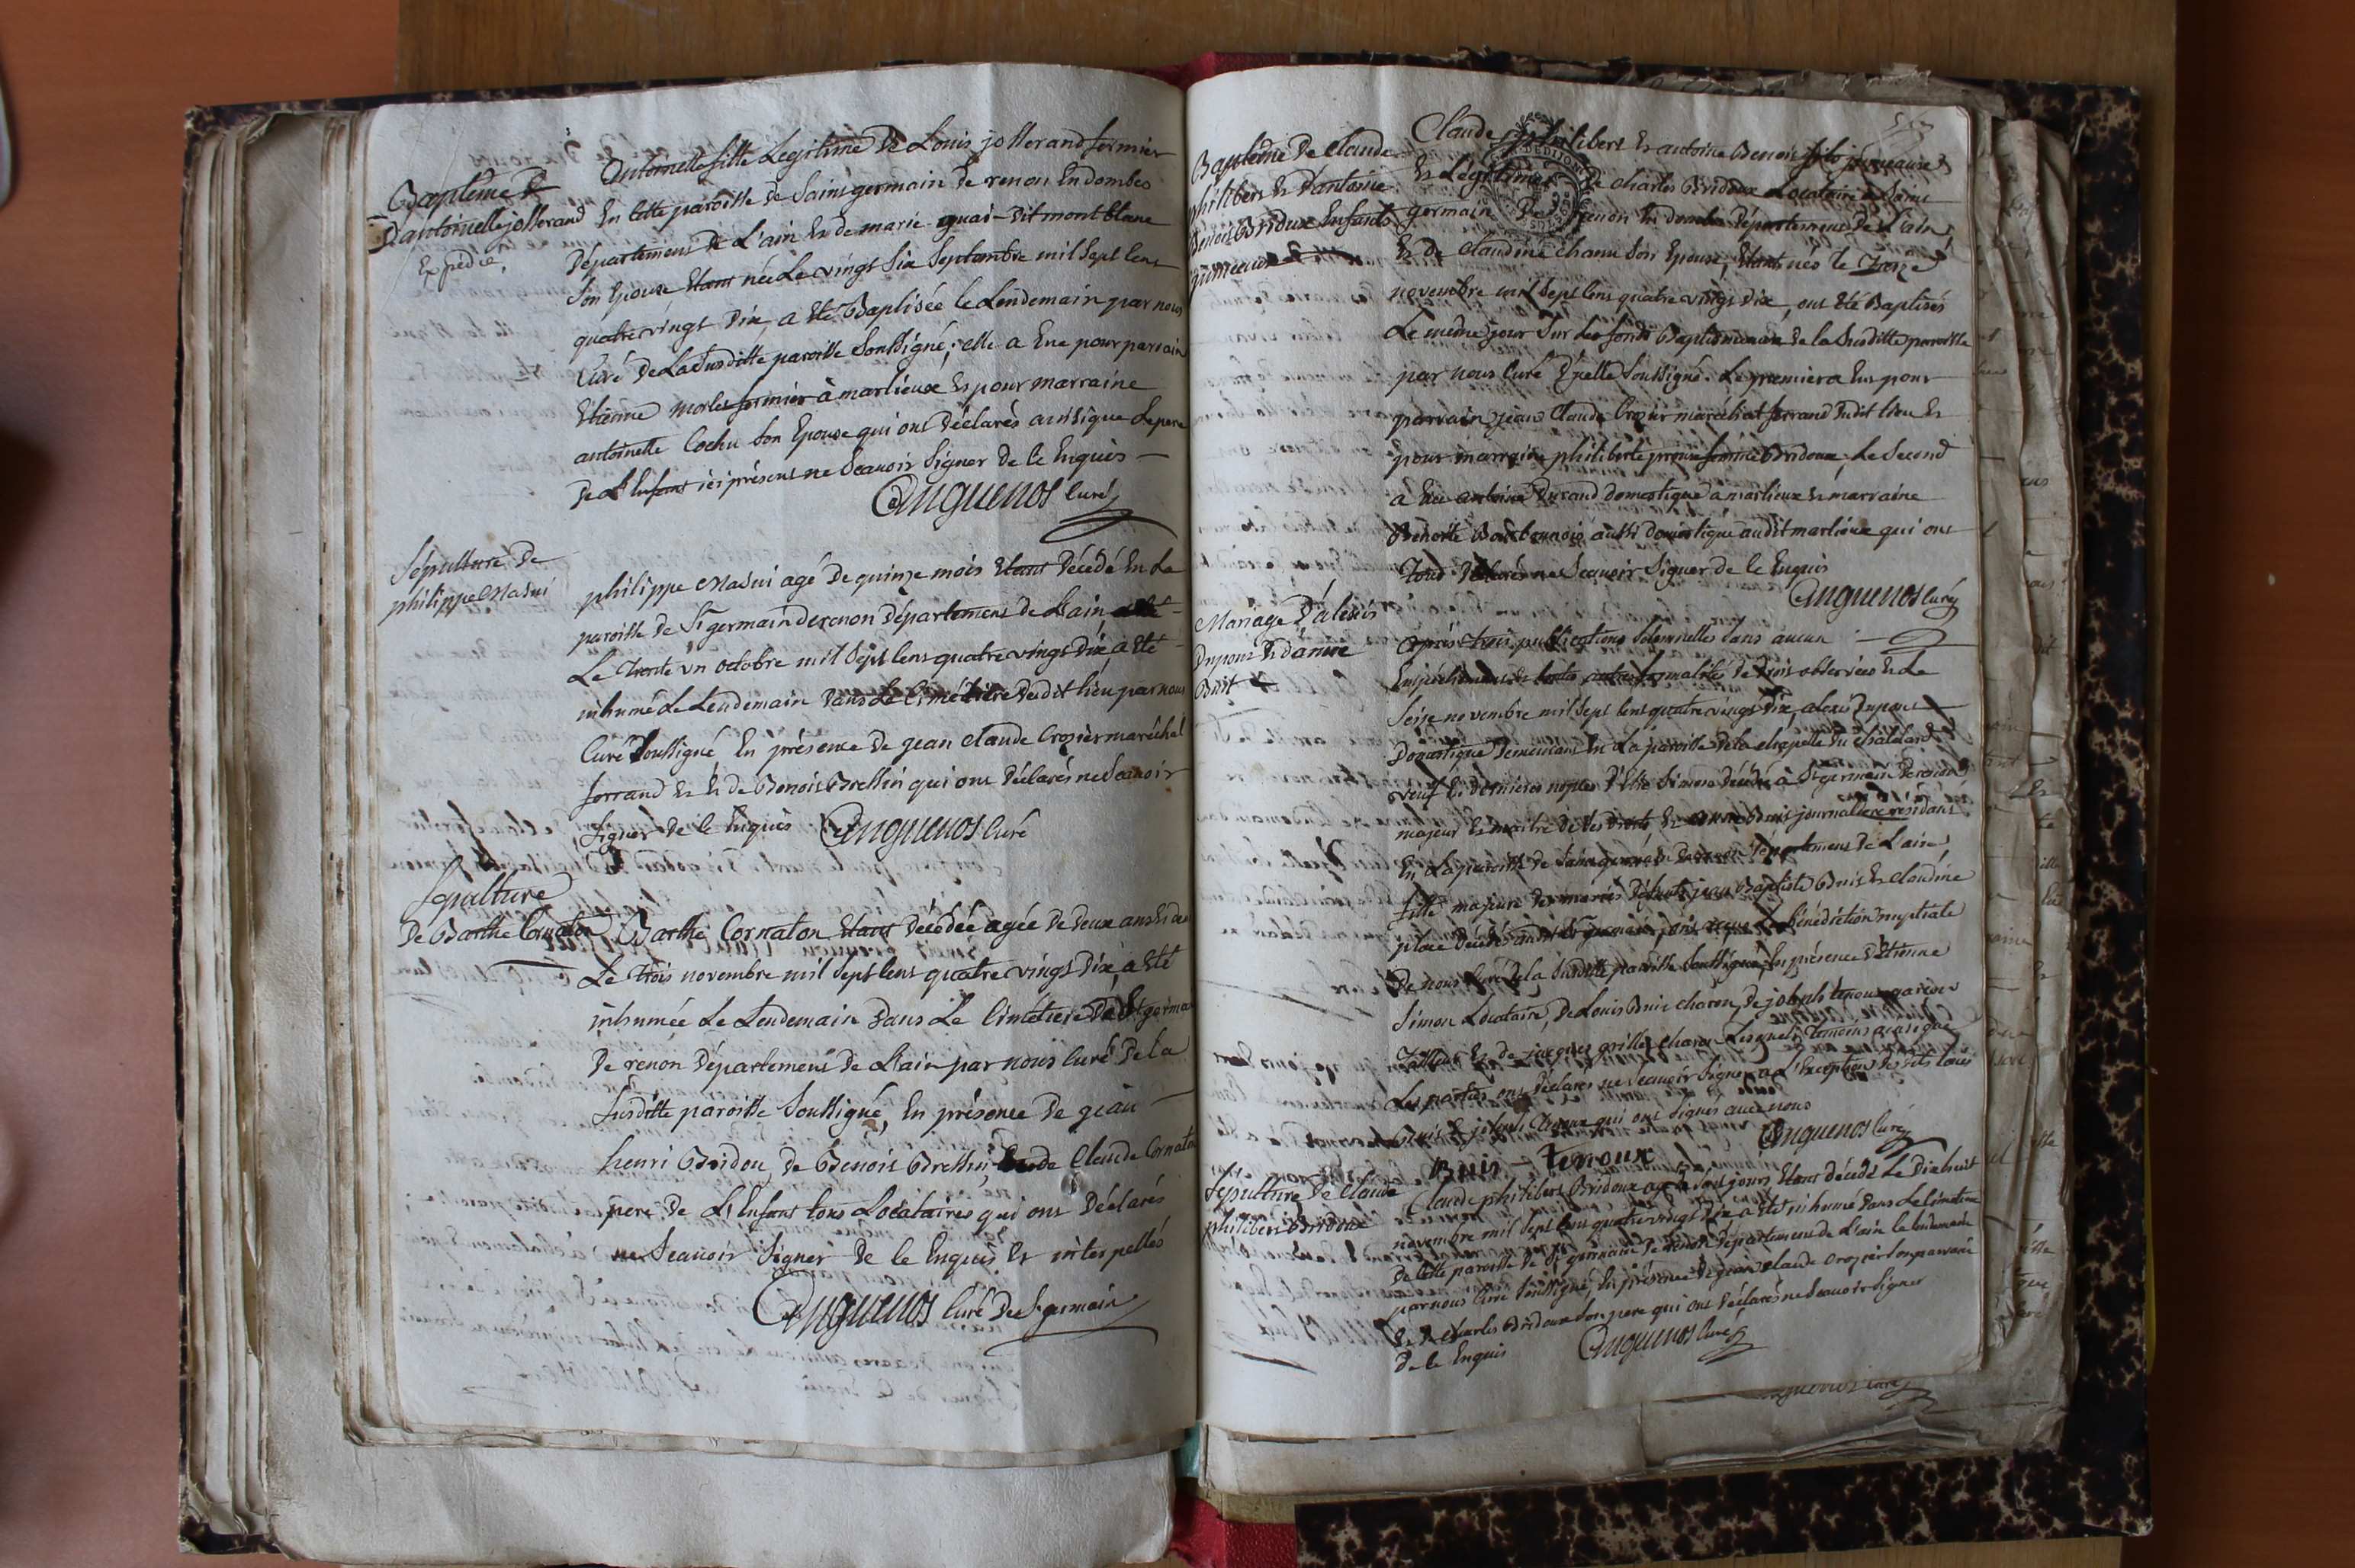 Baptême de
D'antoinette josserand
Expedié,
Antoinette fille Legitime de Louis josserand fermier
En Cette paroisse de Saint germain de renon En dombes
Département de L'ain Et de marie quai-dit montblanc
Son Epouse Etant née Le vingt Six Septembre mil Sept Cent
quatre vingt Dix, a Eté Baptisée le Lendemain par nous
Curé de La Susditte paroisse Soussigné; elle a Eue pour parrain
Etienne morlet fermier à marlieux Et pour marraine
antoinette Cochu Son Epouse qui ont Déclarés ainsi que Le pere
De L'Enfant ici présent ne Scavoir Signer de Ce Enquis —
Anguenos Curé
Sépulture de
philippe Masui
philippe Masui agé De quinze mois Etant Décédé En La
paroisse de St germain de renon Département de L'ain
Le Trente un octobre mil Sept Cent quatre vingt Dix, a Eté
inhumé Le Lendemain dans Le Cimétière dudit lieu par nous
Curé Soussigné En présence de jean Claude Crozier maréchal
ferrand Et Et de Benoit Bressin qui ont Déclarés ne Scavoir
Signer de Ce Enquis Anguenos Curé
Sépulture
De Barthe Cornaton
Barthe Cornaton Etant Décédée agée de Deux ans Et demi
Le trois novembre mil Sept Cent quatre vingt Dix, a Eté
inhumée Le Lendemain Dans Le Cimétiere De St germain
De renon Département de L'ain par nous Curé De La
Susditte paroisse Soussigné, En présence De jean —
henri Bridou, de Benoit Bressin, de Claude Cornaton
pere De L'Enfant tous Locataires qui ont Déclarés
ne Scavoir Signer De Ce Enquis Et interpellés
Anguenos Curé De St germain
Baptême De Claude
philibert Et D'antoine
Benoit Bridoux Enfants
jumeaux
Claude philibert Et antoine Benoit fils jumeaux
Et Légitimes De charles Bridoux Locataire à Saint
germain De renon En dombe Département De L'ain,
Et de Claudine chanu Son Epouse, Etant nés le Treze
novembre mil Sept Cent quatre vingt Dix, ont Eté Baptisés
Le même jour Sur Les fonds Baptismaux de la Susditte paroisse
par nous Curé D'icelle Soussigné. Le premier a Eu pour
parrain jean Claude Crozier maréchal ferrand dudit lieu Et
pour marraine philiberte femme Bridoux, Le Second
a Eu antoine Durand domestique a marlieux Et marraine
Benoite Bourbonnois aussi domestique audit marlieux qui ont
Tous Déclarés ne Scavoir Signer de Ce Enquis
Anguenos Curé
Mariage D'alexis
Dupont Et D'anne
Buit
Après trois publications Solemnelles Sans aucun
Empêchement Et toutes autres formalités de Droit observées Et Le
Seize novembre mil Sept Cent quatre vingt Dix, alexis Dupont
Domestique Demeurant En La paroisse de la chapelle du chatelard
veuf En dernieres noples D' Simon Décédée à St germain de renon
majeur Et maitre de Ses Droits, Et anne Buit journaliere résidant
En La paroisse de Saint germain De renon Département de L'ain
fille majeure des mariés Défunts jean Baptiste Buis Et claudine
place Décédés audit St germain, ont reçue La Bénédiction nuptiale
De nous Curé de la Susditte paroisse Soussigné, En présence d'Etienne
Simon Locataire, de Louis Buis charon, de joseph terroux garcon
Tailleur Et de jacques grillet charon Lesquels temoins ainsi que
Les parties ont Déclarés ne Scavoir Signer a L'exception des dits Louis
Buit Et joseph Terroux qui ont Signés avec nous
Buis — Terroux Anguenos Curé
Sépulture De Claude
philibert Bridoux
Claude philibert Bridoux agé de jours Etant décédé Le Dix huit
novembre mil Sept Cent quatre vingt Dix a Eté inhumé Dans Le Cimetiere
de Cette paroisse de St germain de renon Département de L'ain le Lendemain
par nous Curé Soussigné, En présence de jean claude Crozier Son parrain
Et de charles Bridoux Son pere qui ont Déclarés ne Scavoir Signer
de Ce Enquis Anguenos Curé